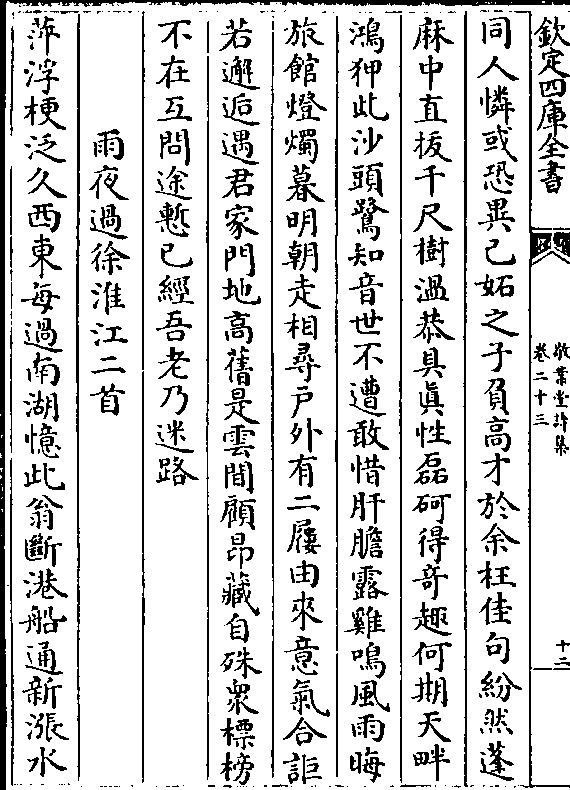 欽定四庫全書
敬業堂詩集
卷二十三
十二
同人憐或恐異己妬之子負高才於余枉佳句紛然蓬
麻中直拔千尺樹溫恭具眞性磊砢得奇趣何期天畔
鴻狎此沙頭鷺知音世不遭敢惜肝膽露雞鳴風雨晦
旅館燈燭暮明朝走相尋戸外有二屨由來意氣合詎
若邂逅遇君家門地高舊是雲間顧昂藏自殊衆標榜
不在互問途慙已經吾老乃迷路
雨夜過徐淮江二首
萍浮梗泛久西東每過南湖憶此翁斷港船通新漲水